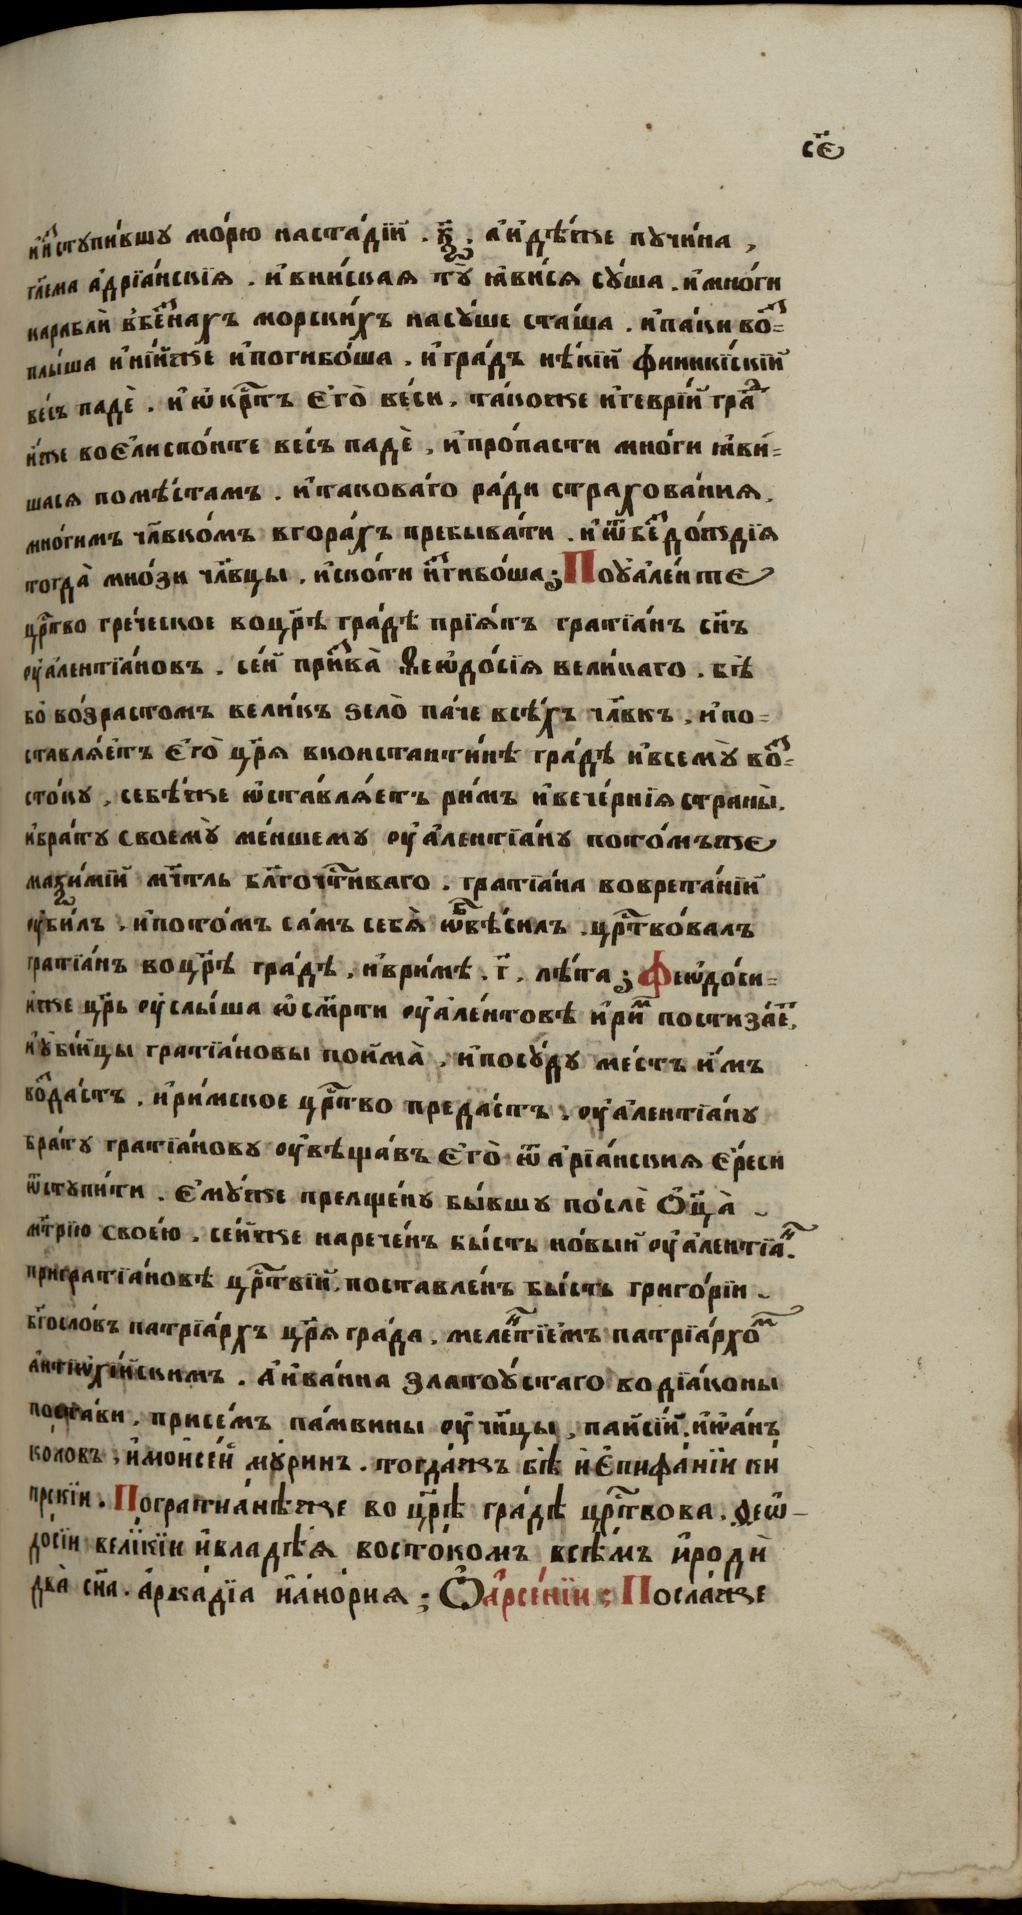 с҃е
и҆и҆ступи́вшу мо́рю наста́дїй . к҃ѯ . а҆и҆дѣ́же пучи́на ,
гл҃ема а҆дрїа́нскїя . и҆вни́ская ту̀ ꙗ҆ви́ся су́ша . и҆мно́ги
караблѝ в̾бе́знахъ морски́хъ насу́ше ста́ша . и҆па́ки во̾с=
плы́ша и҆ні́иже и҆погибо́ша . и҆гра́дъ нѣ́кїй финикі́скїй
ве́сь падѐ . и҆ѡ҆кр҃тъ є҆го̀ ве́си . та́коже и҆гевріи́ гра̾д
и҆́же воє҆лиспо́нте ве́сь падѐ , и҆про́пасти мно́ги ꙗ҆ви́=
шася помѣ́стамъ . и҆такова́го ра́ди страхова́ния ,
мно́гимъ чл҃вко́мъ вгора́хъ пребыва́ти . и҆ѿбе̾здо́ждїя
тогда̀ мно́зи чл҃вцы , и҆ско́ти и҆зги́боша ; Поуа҆ле́нте
цр҃тво гре́ческое воцр҃ѣ гра́дѣ прїя́тъ гратїа́нъ сн҃ъ
оу҆алентїа́новъ . се́й призва̀ Ѳеѡ҆до́сїя вели́каго . бѣ̀
бо̀ во́зрастомъ вели́къ ѕело̀ па́че всѣ́хъ чл҃вкъ , и҆по=
ставля́етъ є҆го̀ цр҃я вконстанти́нѣ гра́дѣ и҆всему̀ во̾=
сто́ку , себѣ́же ѡ҆ставля́етъ ри́мъ и҆вече́рнїя страны̀ .
и҆бра́ту своему̀ ме́ншему оу҆а҆лентїа́ну пото́мъже
маѯи́мїй мч҃тль бл҃гочт҃иваго . гратїа́на воврета́нїй
оу҆би́лъ , и҆пото́мъ са́мъ себя̀ ѡ҆бвѣ́силъ . цр҃тво́валъ
гратїа́нъ воцр҃ѣ гра́дѣ , и҆ври́мѣ . г҃ , лѣ́та ; Феѡ҆до́си=
и҆же цр҃ь оу҆слы́ша ѡ҆см҃рти оу҆а҆ле́нтовѣ и҆ри́м постиза́ет ,
и҆ꙋ҆бі́йцы гратїа́новы пойма̀ , и҆посу́ду ме́сть и҆́мъ
во̾зда́стъ . и҆ри́мское цр҃тво преда́стъ . оу҆а҆лентїа́ну
бра́ту гратїа́нову оу҆вѣща́въ є҆го̀ ѿа҆рїа́нския є҆́реси
ѿступи́ти . є҆му́же прелще́ну бы́вшу по́слѐ Ѻ҆ц҃а̀
мт҃рїю свое́ю . се́йже нарече́нъ бы́сть но́вый оу҆а҆лентїа́н .
пригратїа́новѣ цр҃твїй поставле́нъ бы́сть григо́рїи
бг҃осло́въ патрїа́рхъ цр҃я гра́да , меле́нтїемъ патрїа́рхом
а҆нтїѡ҆хі́йскимъ . а҆и҆ва́нна златоу́стаго водїа́коны
поста́ви , присе́мъ па́мвины оу҆чн҃цы , паи́сїй . и҆и҆ѡа́нъ
коло́въ , и҆мои҆се́й му́ринъ . тогда́жъ бѣ̀ и҆є҆пифа́нїи ки
прскїи . Погратиа́нѣже во цр҃ѣ гра́дѣ цр҃твова . Ѳеѡ-
до́сїи вели́кїи и҆владѣ́я восто́комъ всѣ́мъ и҆родѝ
два̀ сн҃а . а҆рка́дїа и҆а҆но́рия ; Ѻ҆а҆рсе́нїи ; Посла́же